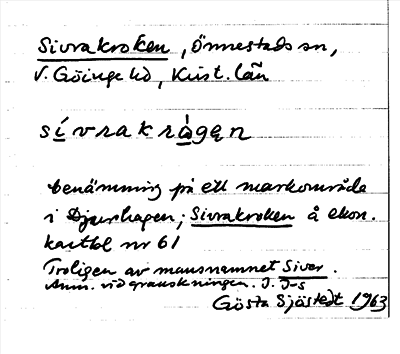 Sivrakroken, Önnestads sn,
V. Göinge hd, Krist. län
sívrakrå̀gen
benämning på ett markområde
i Djurhagen; Sivrakroken å ekon.
kartbl nr 61
Troligen av mansnamnet Siver.
Anm. vid granskningen. J. J-s
Gösta Sjöstedt 1963